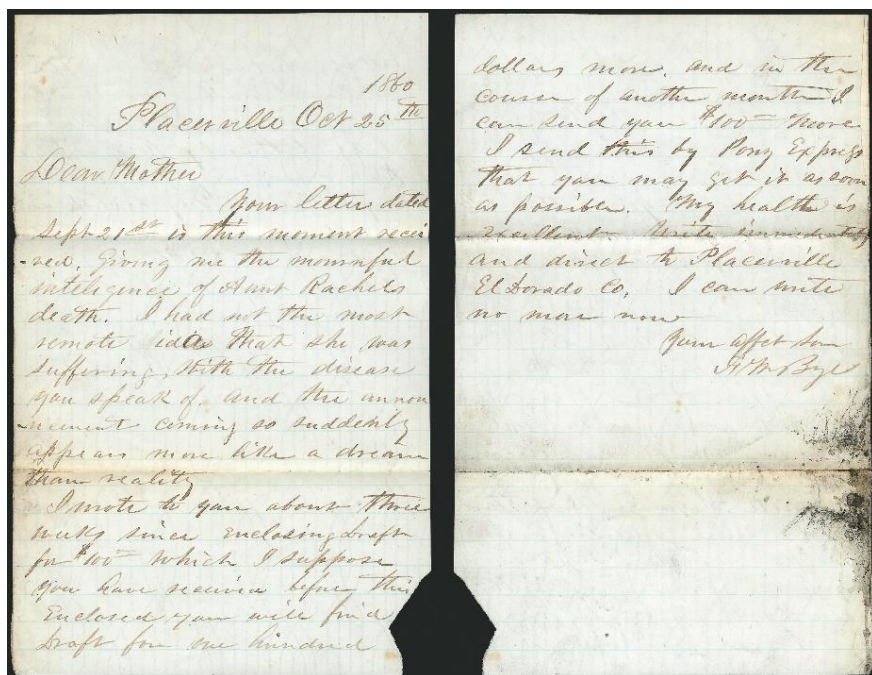 1860
Placerville Oct 25th
Dear Mother
Your letter dated
Sept 21st is this moment recei
-ved. Giving me the mournful
inteligence of Aunt Rachels
death. I had not the most
remote idea that she was
suffering with the disease
you speak of. and the annou
-ncement coming so suddenly
appears more like a dream
than reality
I wrote to you about three
weeks since enclosing draft
for $100 which I suppose
you have received before this
Enclosed you will find
draft for one hundred
dollars more. and in the
course of another month I
can send you $100 more
I send this by Pony Express
that you may get it as soon
as possible. My health is
excellent. Write immediately
and direct to Placerville
El Dorado Co. I can write
no more now
Your affct Son
Bye